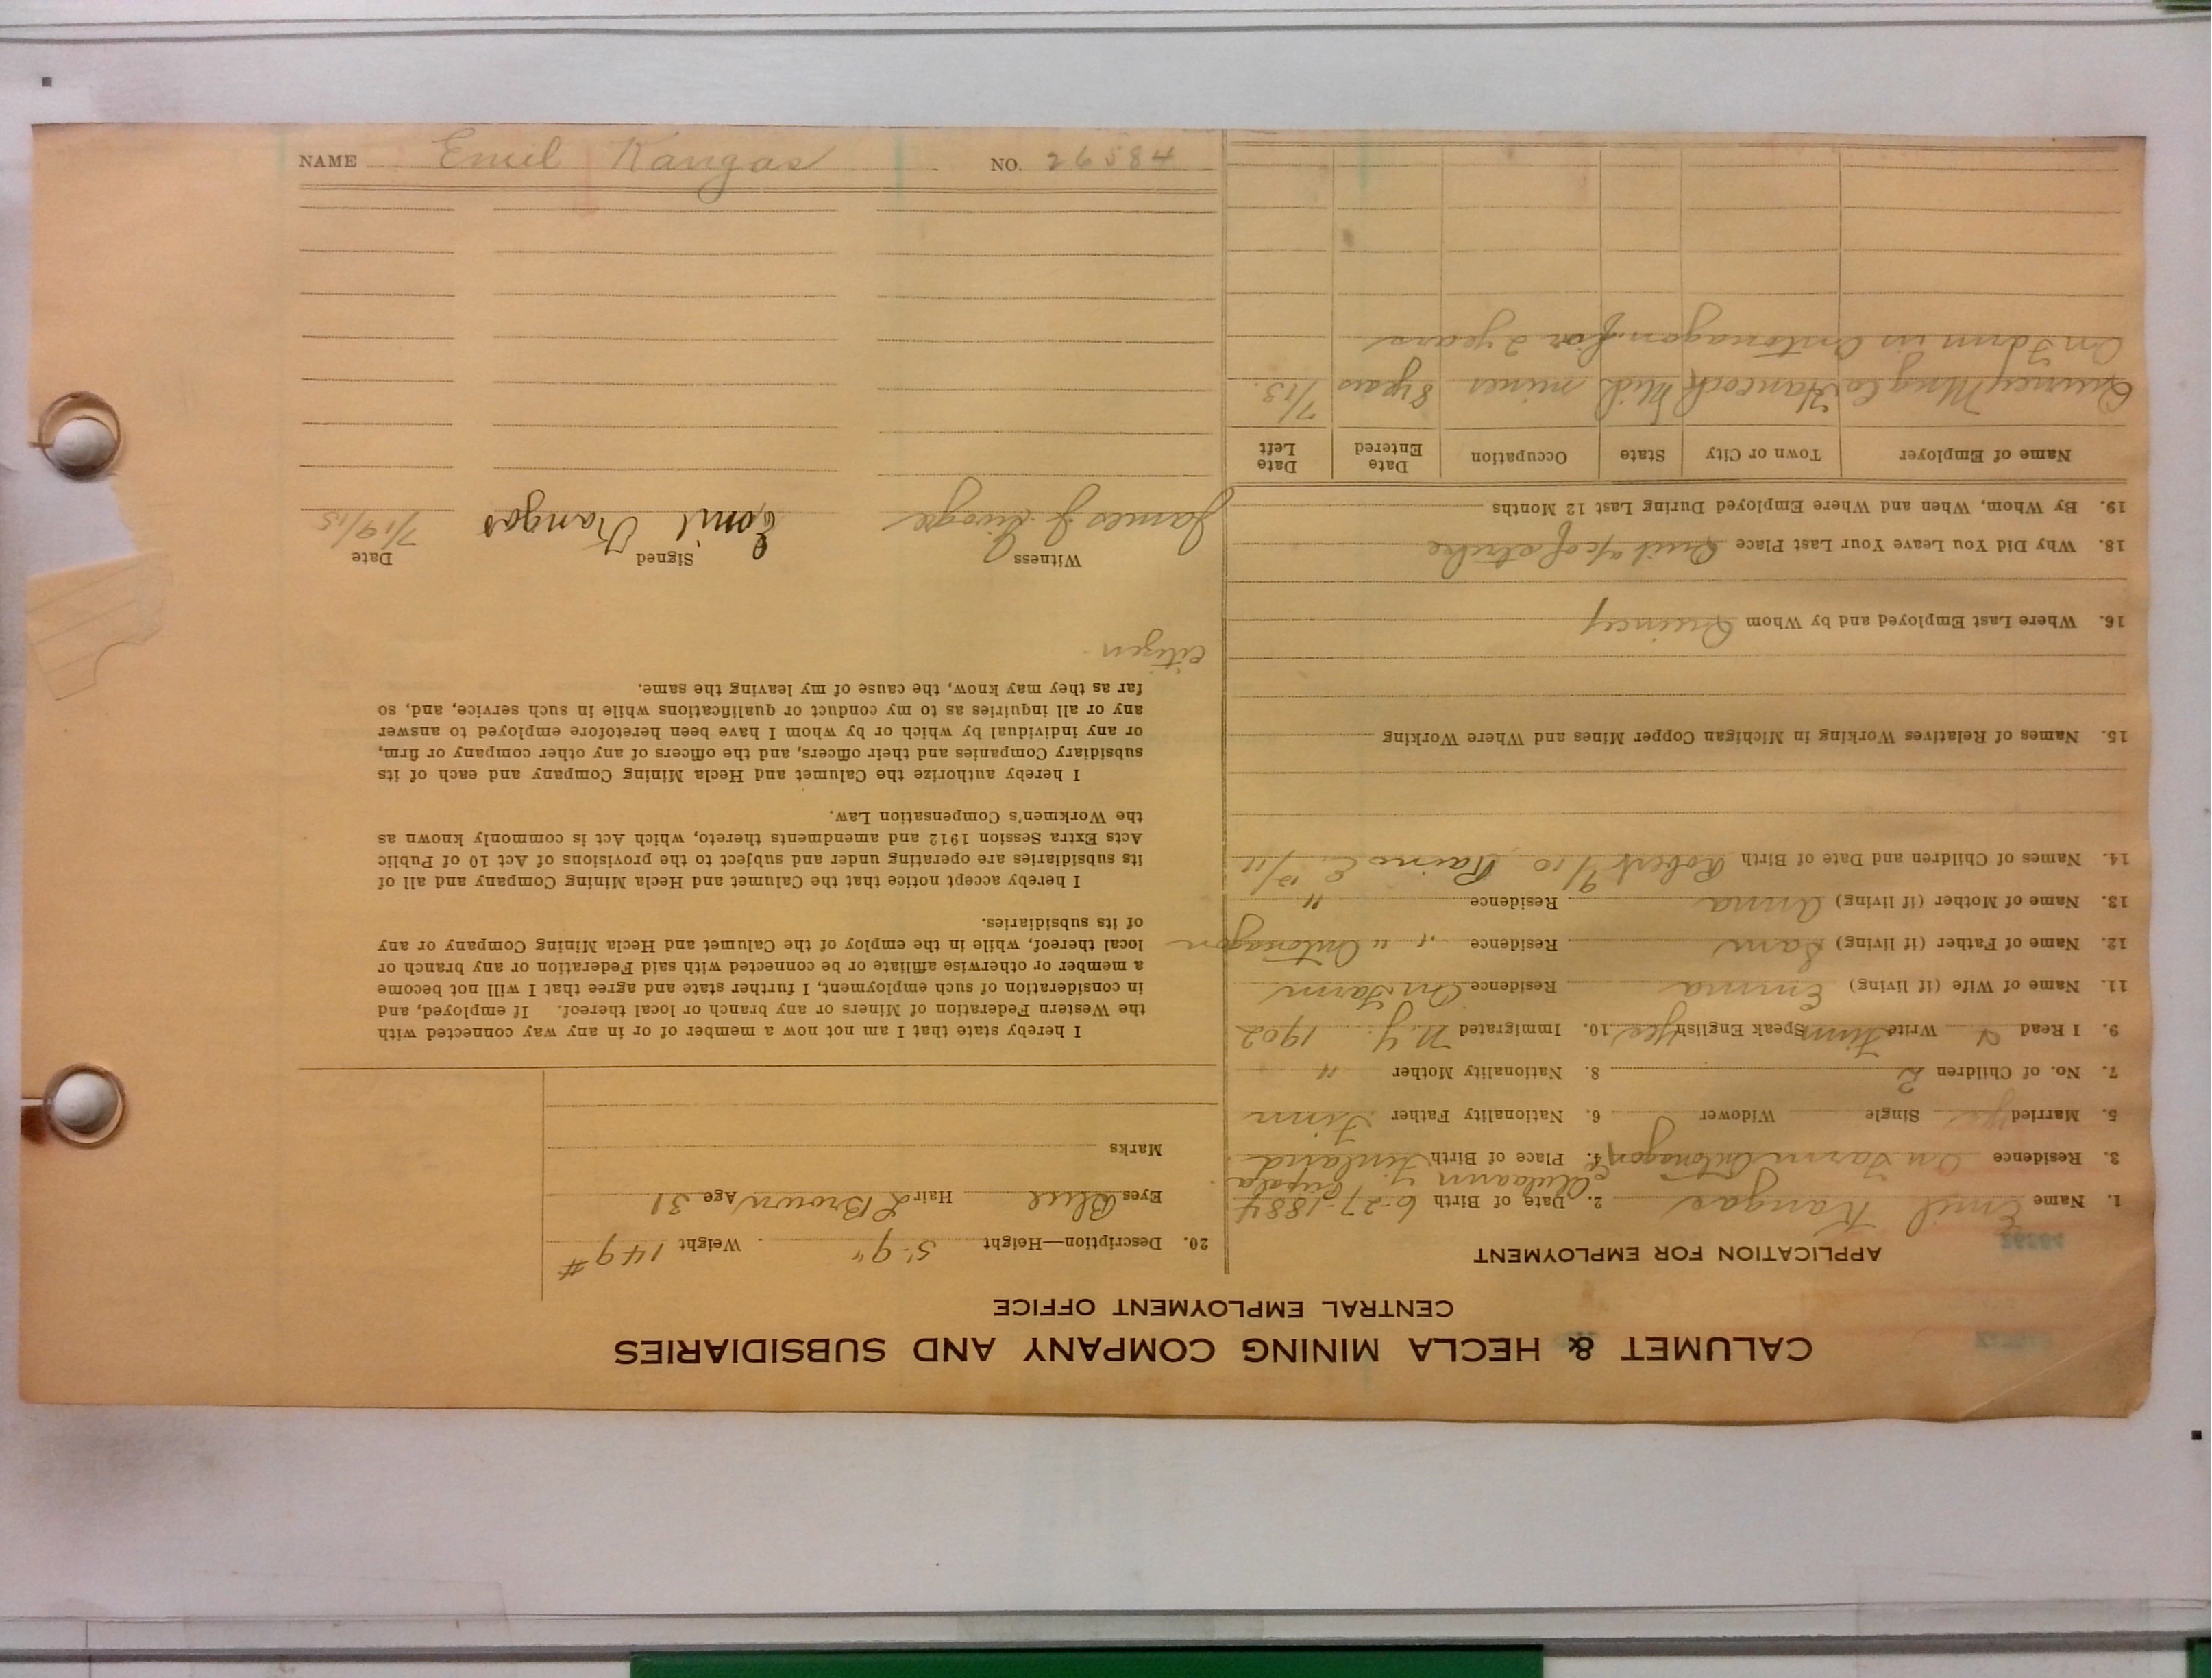 NAME Emil Kangas NO. 26584
CALUMET & HECLA MINING COMPANY AND SUBSIDIARIES
CENTRAL EMPLOYMENT OFFICE
APPLICATION FOR EMPLOYMENT
1. Name Emil Kangas 2. Date of Birth 6-27-1884
3. Residence On Farm Ontonagon 4. Place of Birth Finland
5. Married yes Single Widower 6. Nationality Father Finn
7. No. of Children 2 8. Nationality Mother "
9. I Read & Write Finn Speak English yes 10. Immigrated N.Y. 1902
11. Name of Wife (if living) Emma Residence On Farm
12. Name of Father (if living) Sam Residence " " Ontonagon
13. Name of Mother (if living) Anna Residence "
14. Names of Children and Date of Birth Robert 9/10 Raino E. 12/11
15. Names of Relatives Working in Michigan Copper Mines and Where Working
16. Where Last Employed and by Whom Quincy
18. Why Did You Leave Your Last Place Quit a/c of strike
19. By Whom, When and Where Employed During Last 12 Months
Name of Employer Town or City State Occupation Date Entered Date Left
Quincy Mng Co Hancock Mich miner 8 years 7/13.
On Farm in Ontonagon for 2 years
20. Description—Height 5'-9" Weight 149#
Eyes Blue Hair L Brown Age 31
Marks
I hereby state that I am not now a member of or in any way connected with
the Western Federation of Miners or any branch or local thereof. If employed, and
in consideration of such employment, I further state and agree that I will not become
a member or otherwise affiliate or be connected with said Federation or any branch or
local thereof, while in the employ of the Calumet and Hecla Mining Company or any
of its subsidiaries.
I hereby accept notice that the Calumet and Hecla Mining Company and all of
its subsidiaries are operating under and subject to the provisions of Act 10 of Public
Acts Extra Session 1912 and amendments thereto, which Act is commonly known as
the Workmen's Compensation Law.
I hereby authorize the Calumet and Hecla Mining Company and each of its
subsidiary Companies and their officers, and the officers of any other company or firm,
or any individual by which or by whom I have been heretofore employed to answer
any or all inquiries as to my conduct or qualifications while in such service, and, so
far as they may know, the cause of my leaving the same.
citizen
Witness Signed Date
James J. Emil Kangas 7/19/15